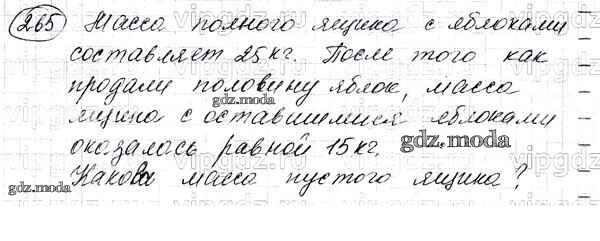 265 Масса полного ящика с яблоками
составляет 25 кг. После того как
продали половину яблок, масса
ящика с оставшимися яблоками
gdz.moda
оказалась равной 15 кг.
gdz.moda
Какова масса пустого ящика?
gdz.moda